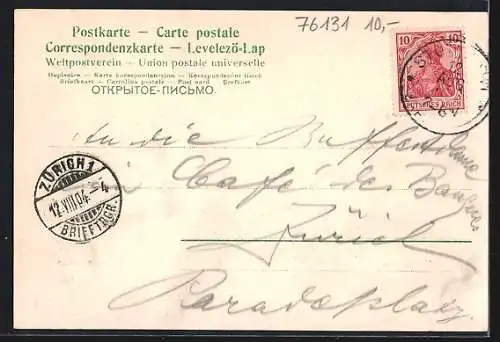 76131 10,-
Postkarte – Carte postale
Correspondenzkarte – Levelező-Lap
Weltpostverein – Union postale universelle
Dopisnice – Karta korespondencyjna – Korespondenční lístek
Briefkaart – Cartolina postale – Post card – Brefkort
ОТКРЫТОЕ ПИСЬМО.
10 10
DEUTSCHES REICH
An die Buffetdame
Café des Banques
Zürich
Paradeplatz
ZÜRICH 1
12.VIII.04.–4
BRIEFTRGR.